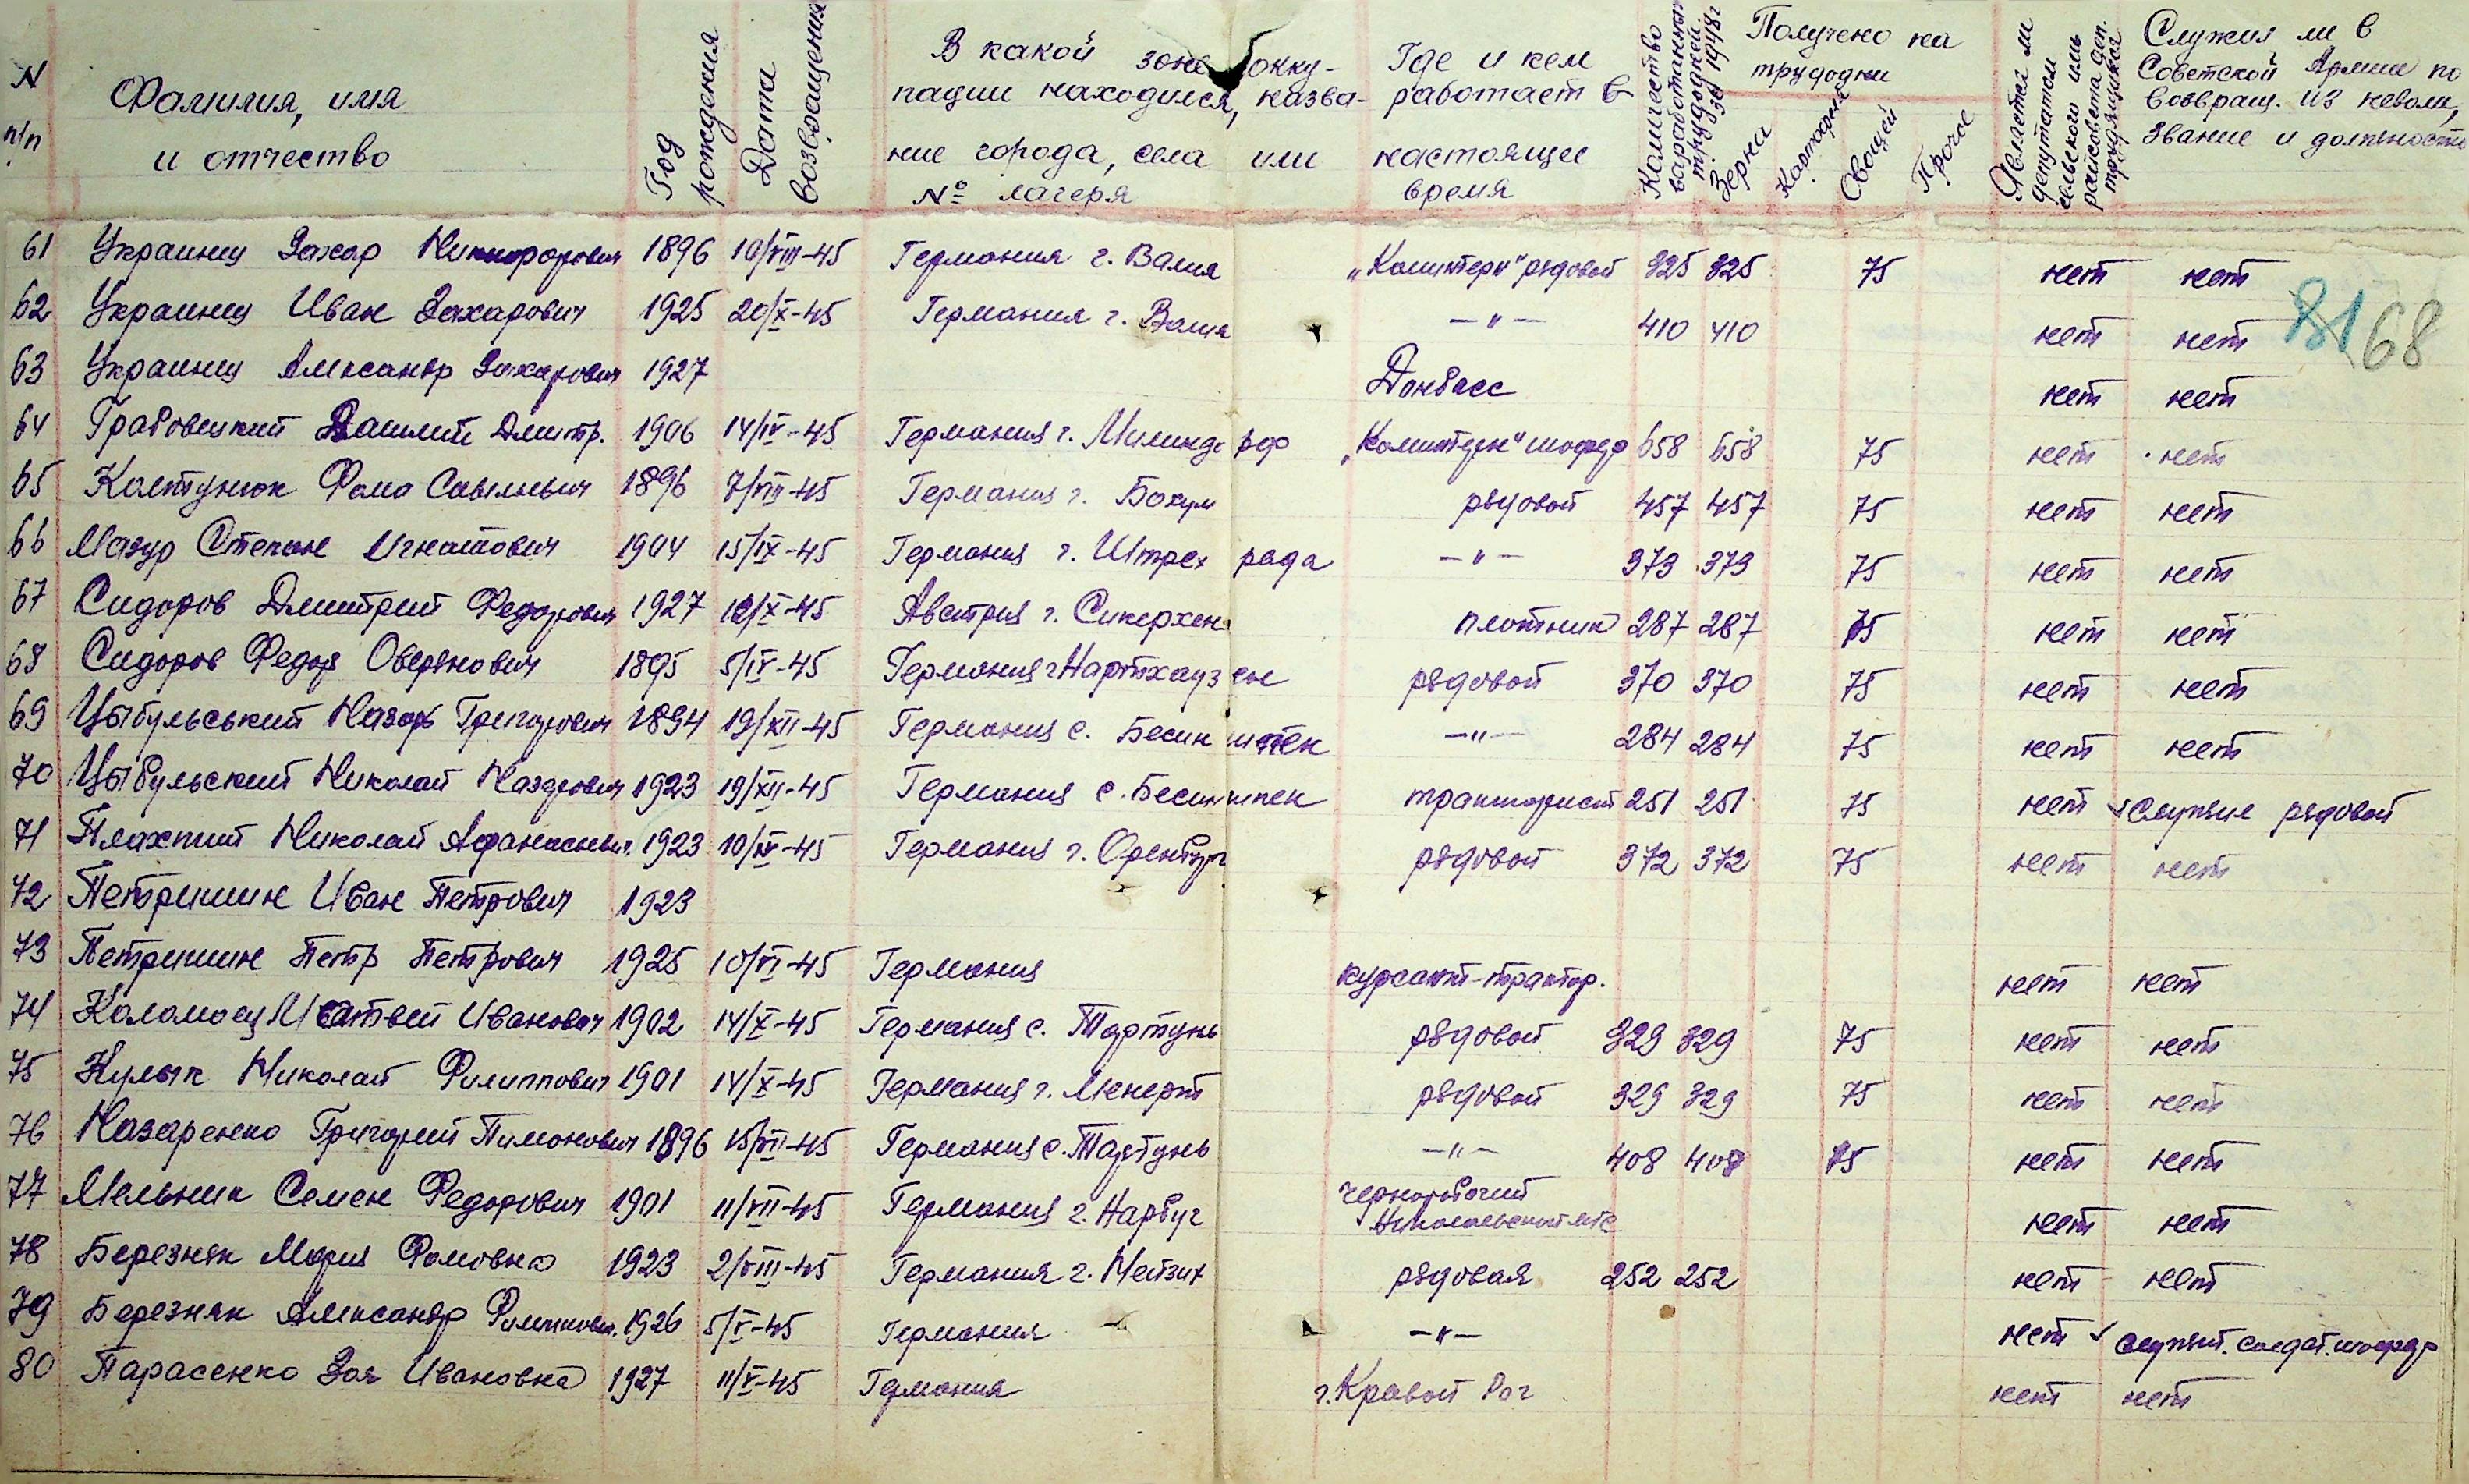 N п/п
Фамилия, имя и отчество
Год рождения
Дата возвращения
В какой зоне оккупации находился, название города, села или № лагеря
Где и кем работает в настоящее время
Количество выработанных трудодней за 1948 г
Получено на трудодни
Зерна
Картофеля
Овощей
Прочее
Является ли депутатом сельского или райсовета деп. трудящихся
Служил ли в Советской Армии по возвращ. из неволи, звание и должность
61 Украинец Захар Никифорович 1896 10/VIII-45 Германия г. Валия „Коминтерн" рядовой 325 325 75 нет нет
8168
62 Украинец Иван Захарович 1925 20/X-45 Германия г. Валия —"— 410 410 нет нет
63 Украинец Александр Захарович 1927 Донбасс нет нет
64 Грабовецкий Василий Дмитр. 1906 14/IV-45 Германия г. „Коминтерн" шофер 658 658 75 нет нет
65 Колтунюк Фома Савельевич 1896 7/VIII-45 Германия г. Бохум рядовой 457 457 75 нет нет
66 Мазур Степан Игнатович 1904 15/IX-45 Германия г. Штрех рада —"— 373 373 75 нет нет
67 Сидоров Дмитрий Федорович 1927 /X-45 Австрия г. Сиперхен плотник 287 287 75 нет нет
68 Сидоров Федор Оверянович 1895 5/IV-45 Германия г Нартхаузен рядовой 370 370 75 нет нет
69 Цыбульський Назарь Григорович 1894 19/XII-45 Германия с. Бесинштек —"— 284 284 75 нет нет
70 Цыбульский Николай Назарович 1923 19/XII-45 Германия с. Бесинштек тракторист 251 251 75 нет служил рядовой
71 Плахтий Николай Афанасьевич 1923 10/IX-45 Германия г. Оренбург рядовой 372 372 75 нет нет
72 Петришин Иван Петрович 1923
73 Петришин Петр Петрович 1925 10/VI-45 Германия курсант-трактор. нет нет
74 Коломоец Матвей Иванович 1902 14/X-45 Германия с. Тартунь рядовой 329 329 75 нет нет
75 Кулык Николай Филиппович 1901 14/X-45 Германия г. Менерт рядовой 329 329 75 нет нет
76 Назаренко Григорий Пимонович 1896 15/VII-45 Германия с. Тартунь —"— 408 408 75 нет нет
77 Мельник Семен Федорович 1901 11/VII-45 Германия г. Нарбуг чернорабочий нет нет
78 Березняк Мария Фомовна 1923 2/VIII-45 Германия г. Нейзит рядовая 252 252 нет нет
79 Березняк Александр Филиппович. 1926 5/V-45 Германия —"— нет служит. солдат. шофер
80 Парасенко Зоя Ивановна 1927 11/V-45 Германия г. Кравой Рог нет нет